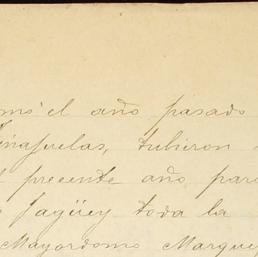 el año pasado
tubieron
precente año para
Jagüey toda la
Mayordomo Marque